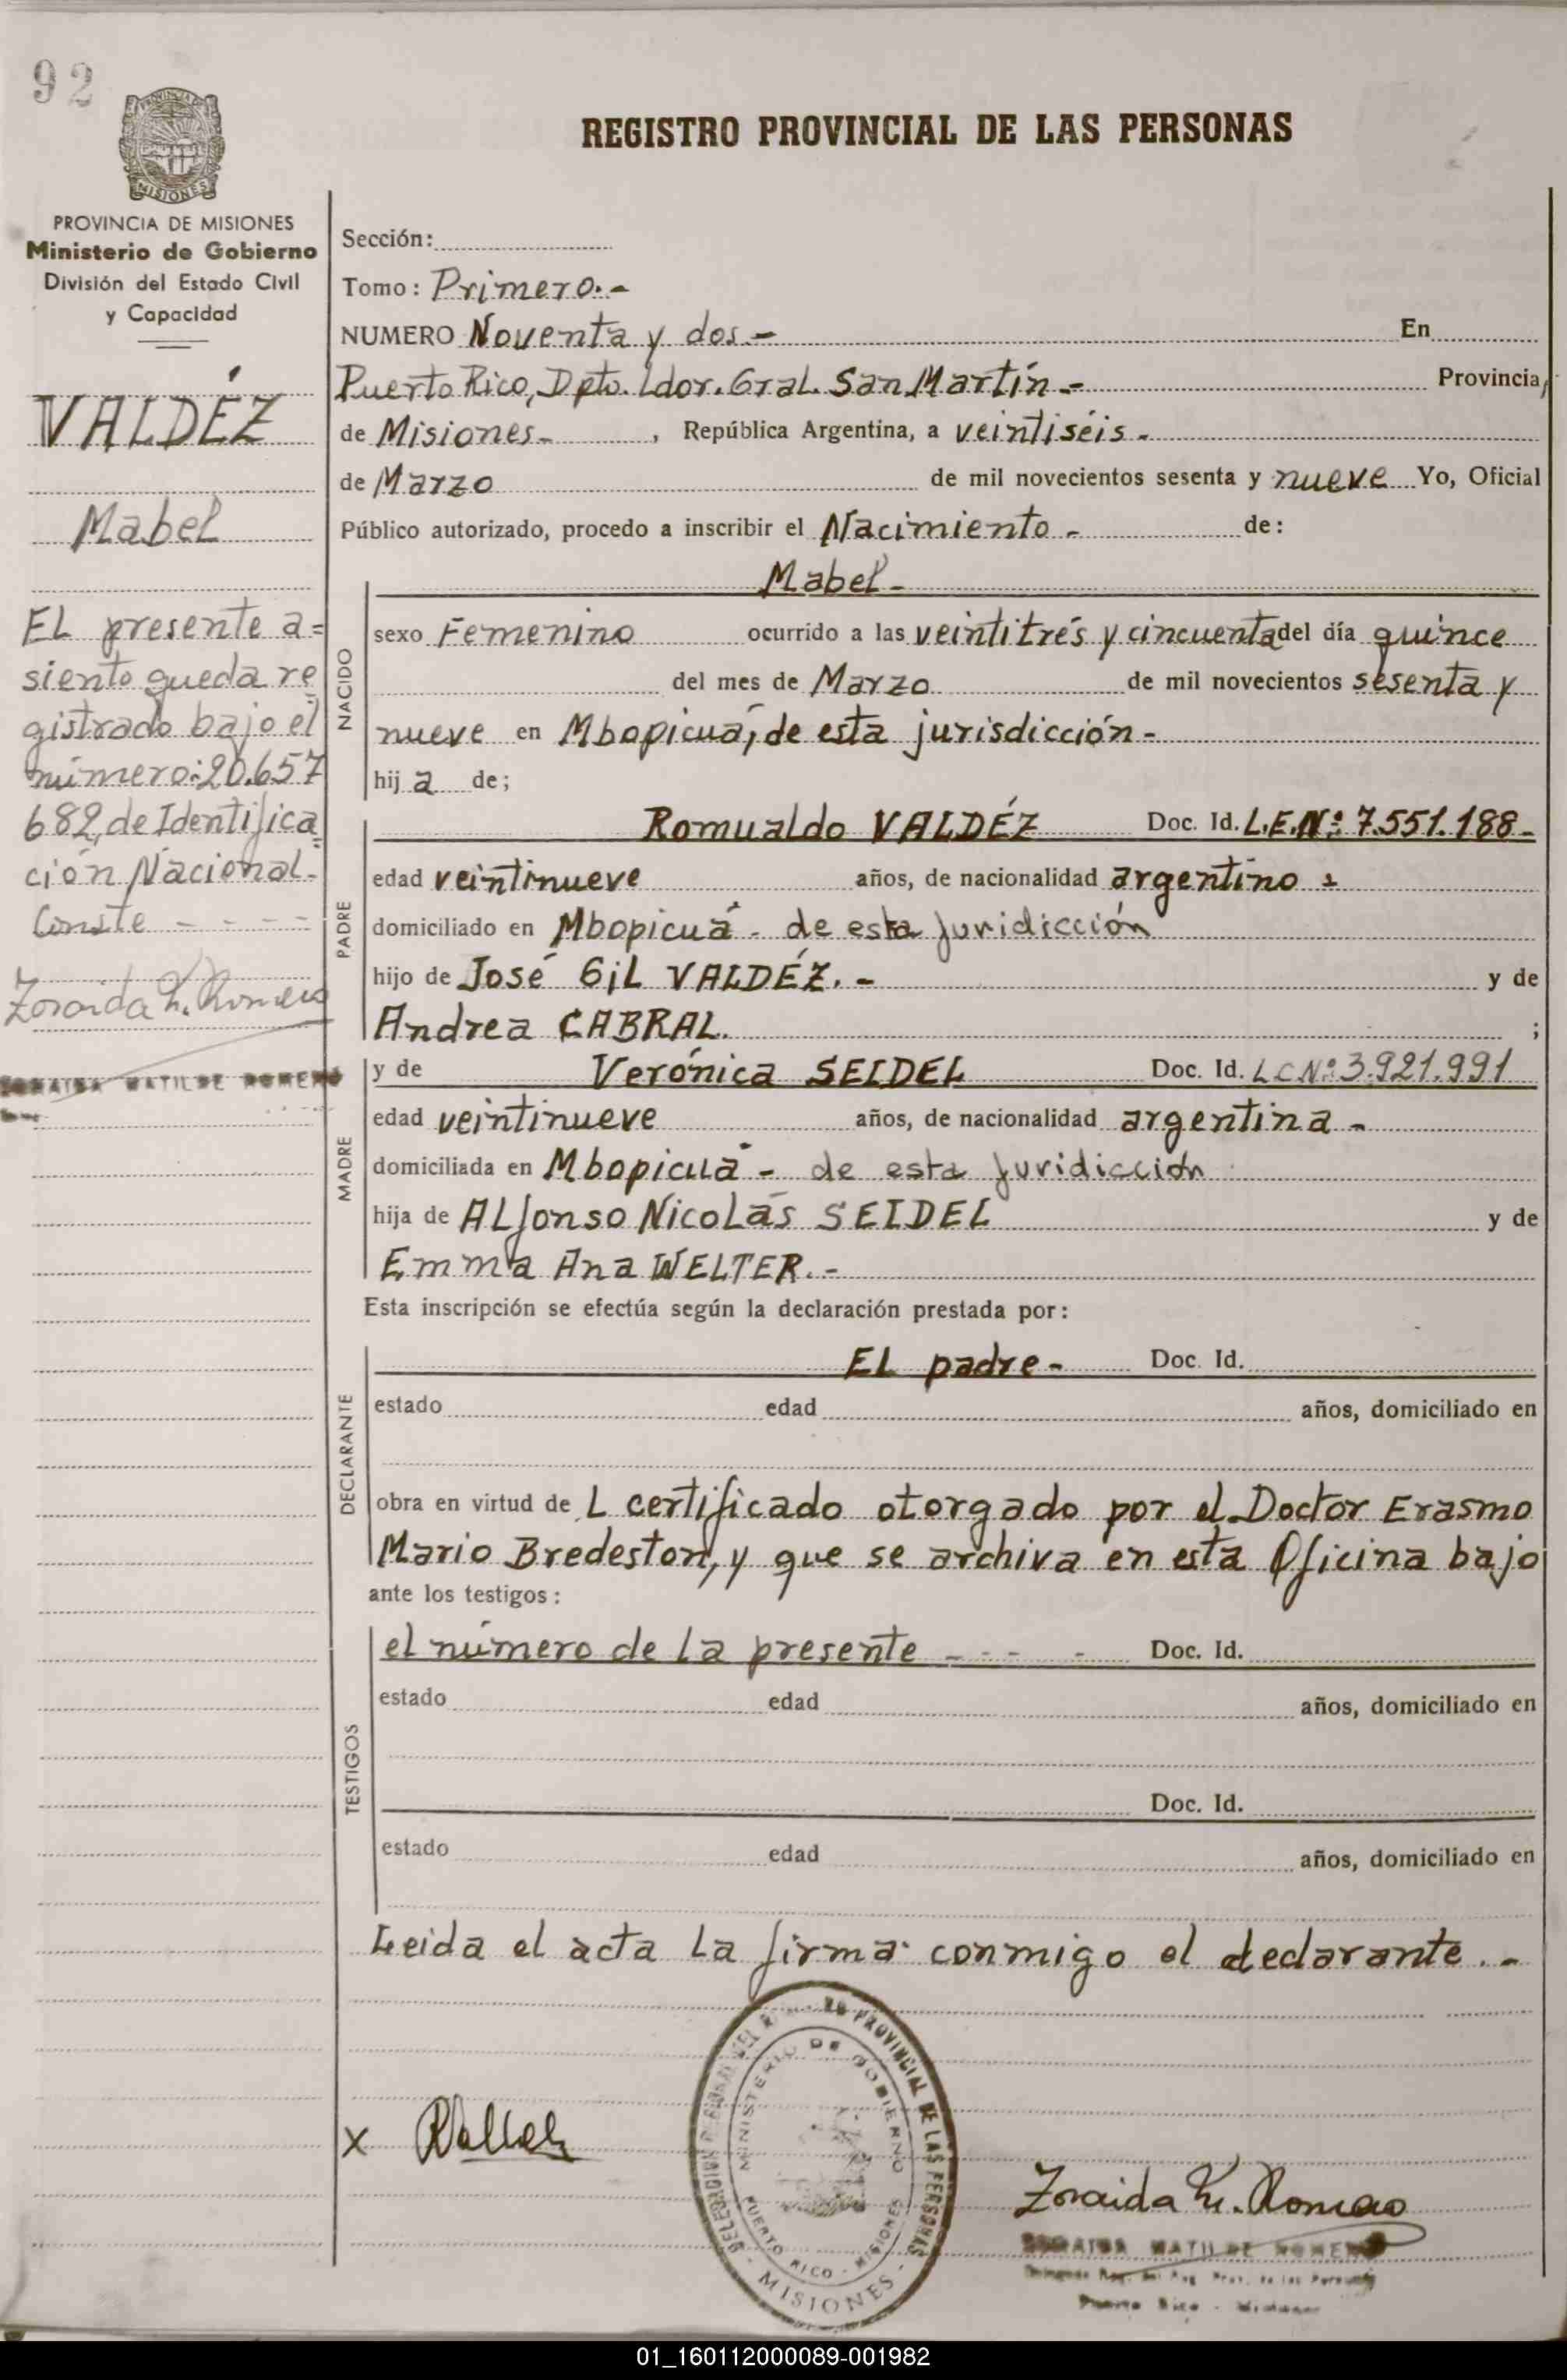 92
PROVINCIA DE
MISIONES
REGISTRO PROVINCIAL DE LAS PERSONAS
PROVINCIA DE MISIONES
Ministerio de Gobierno
División del Estado Civil
y Capacidad
VALDÉZ
Mabel
EL presente a=
siento queda re
gistrado bajo el
número:20.657
682,de Identifica
ción Nacional.-
Conste - - - - -
Zoraida M. Romero
ZORAIDA MATILDE ROMERO
Sección:
Tomo: Primero.-
NUMERO Noventa y dos.- En
Puerto Rico, Dpto. Ldor. Gral. San Martín.- Provincia
de Misiones.- , República Argentina, a veintiséis.-
de Marzo de mil novecientos sesenta y nueve Yo, Oficial
Público autorizado, procedo a inscribir el Nacimiento.- de:
Mabel.-
NACIDO
sexo Femenino ocurrido a las veintitrés y cincuenta del día quince
del mes de Marzo de mil novecientos sesenta y
nueve en Mbopicuá, de esta jurisdicción.-
hij a de;
PADRE
Romualdo VALDÉZ Doc. Id. L.E.Nº 7.551.188-
edad veintinueve años, de nacionalidad argentino.-
domiciliado en Mbopicuá - de esta juridicción
hijo de José Gil VALDÉZ.- y de
Andrea CABRAL. ;
MADRE
y de Verónica SEIDEL Doc. Id. L C Nº 3.921.991
edad veintinueve años, de nacionalidad argentina.-
domiciliada en Mbopicuá - de esta juridicción
hija de ALfonso NicoLás SEIDEL y de
Emma Ana WELTER.-
Esta inscripción se efectúa según la declaración prestada por:
DECLARANTE
EL padre- Doc. Id.
estado edad años, domiciliado en
obra en virtud de L certificado otorgado por el Doctor Erasmo
Mario Bredeston, y que se archiva en esta Oficina bajo
ante los testigos:
TESTIGOS
el número de La presente - - - - Doc. Id.
estado edad años, domiciliado en
Doc. Id.
estado edad años, domiciliado en
Leida el acta La firma conmigo el declarante.-
PROVINCIAL DE LAS PERSONAS
MINISTERIO DE GOBIERNO
PUERTO RICO - MISIONES
- MISIONES -
X RValdez
Zoraida M. Romero
ZORAIDA MATILDE ROMERO
Puerto Rico - Misiones
01_160112000089-001982